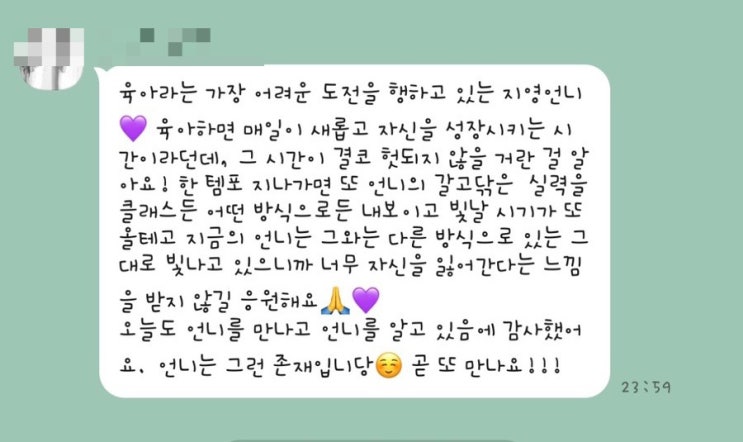 육아라는 가장 어려운 도전을 행하고 있는 지영언니
💜 육아하면 매일이 새롭고 자신을 성장시키는 시
간이라던데, 그 시간이 결코 헛되지 않을 거란 걸 알
아요! 한 템포 지나가면 또 언니의 갈고닦은 실력을
클래스든 어떤 방식으로든 내보이고 빛날 시기가 또
올테고 지금의 언니는 그와는 다른 방식으로 있는 그
대로 빛나고 있으니까 너무 자신을 잃어간다는 느낌
을 받지 않길 응원해요🙏💜
오늘도 언니를 만나고 언니를 알고 있음에 감사했어
요. 언니는 그런 존재입니당☺️ 곧 또 만나요!!!
23:59